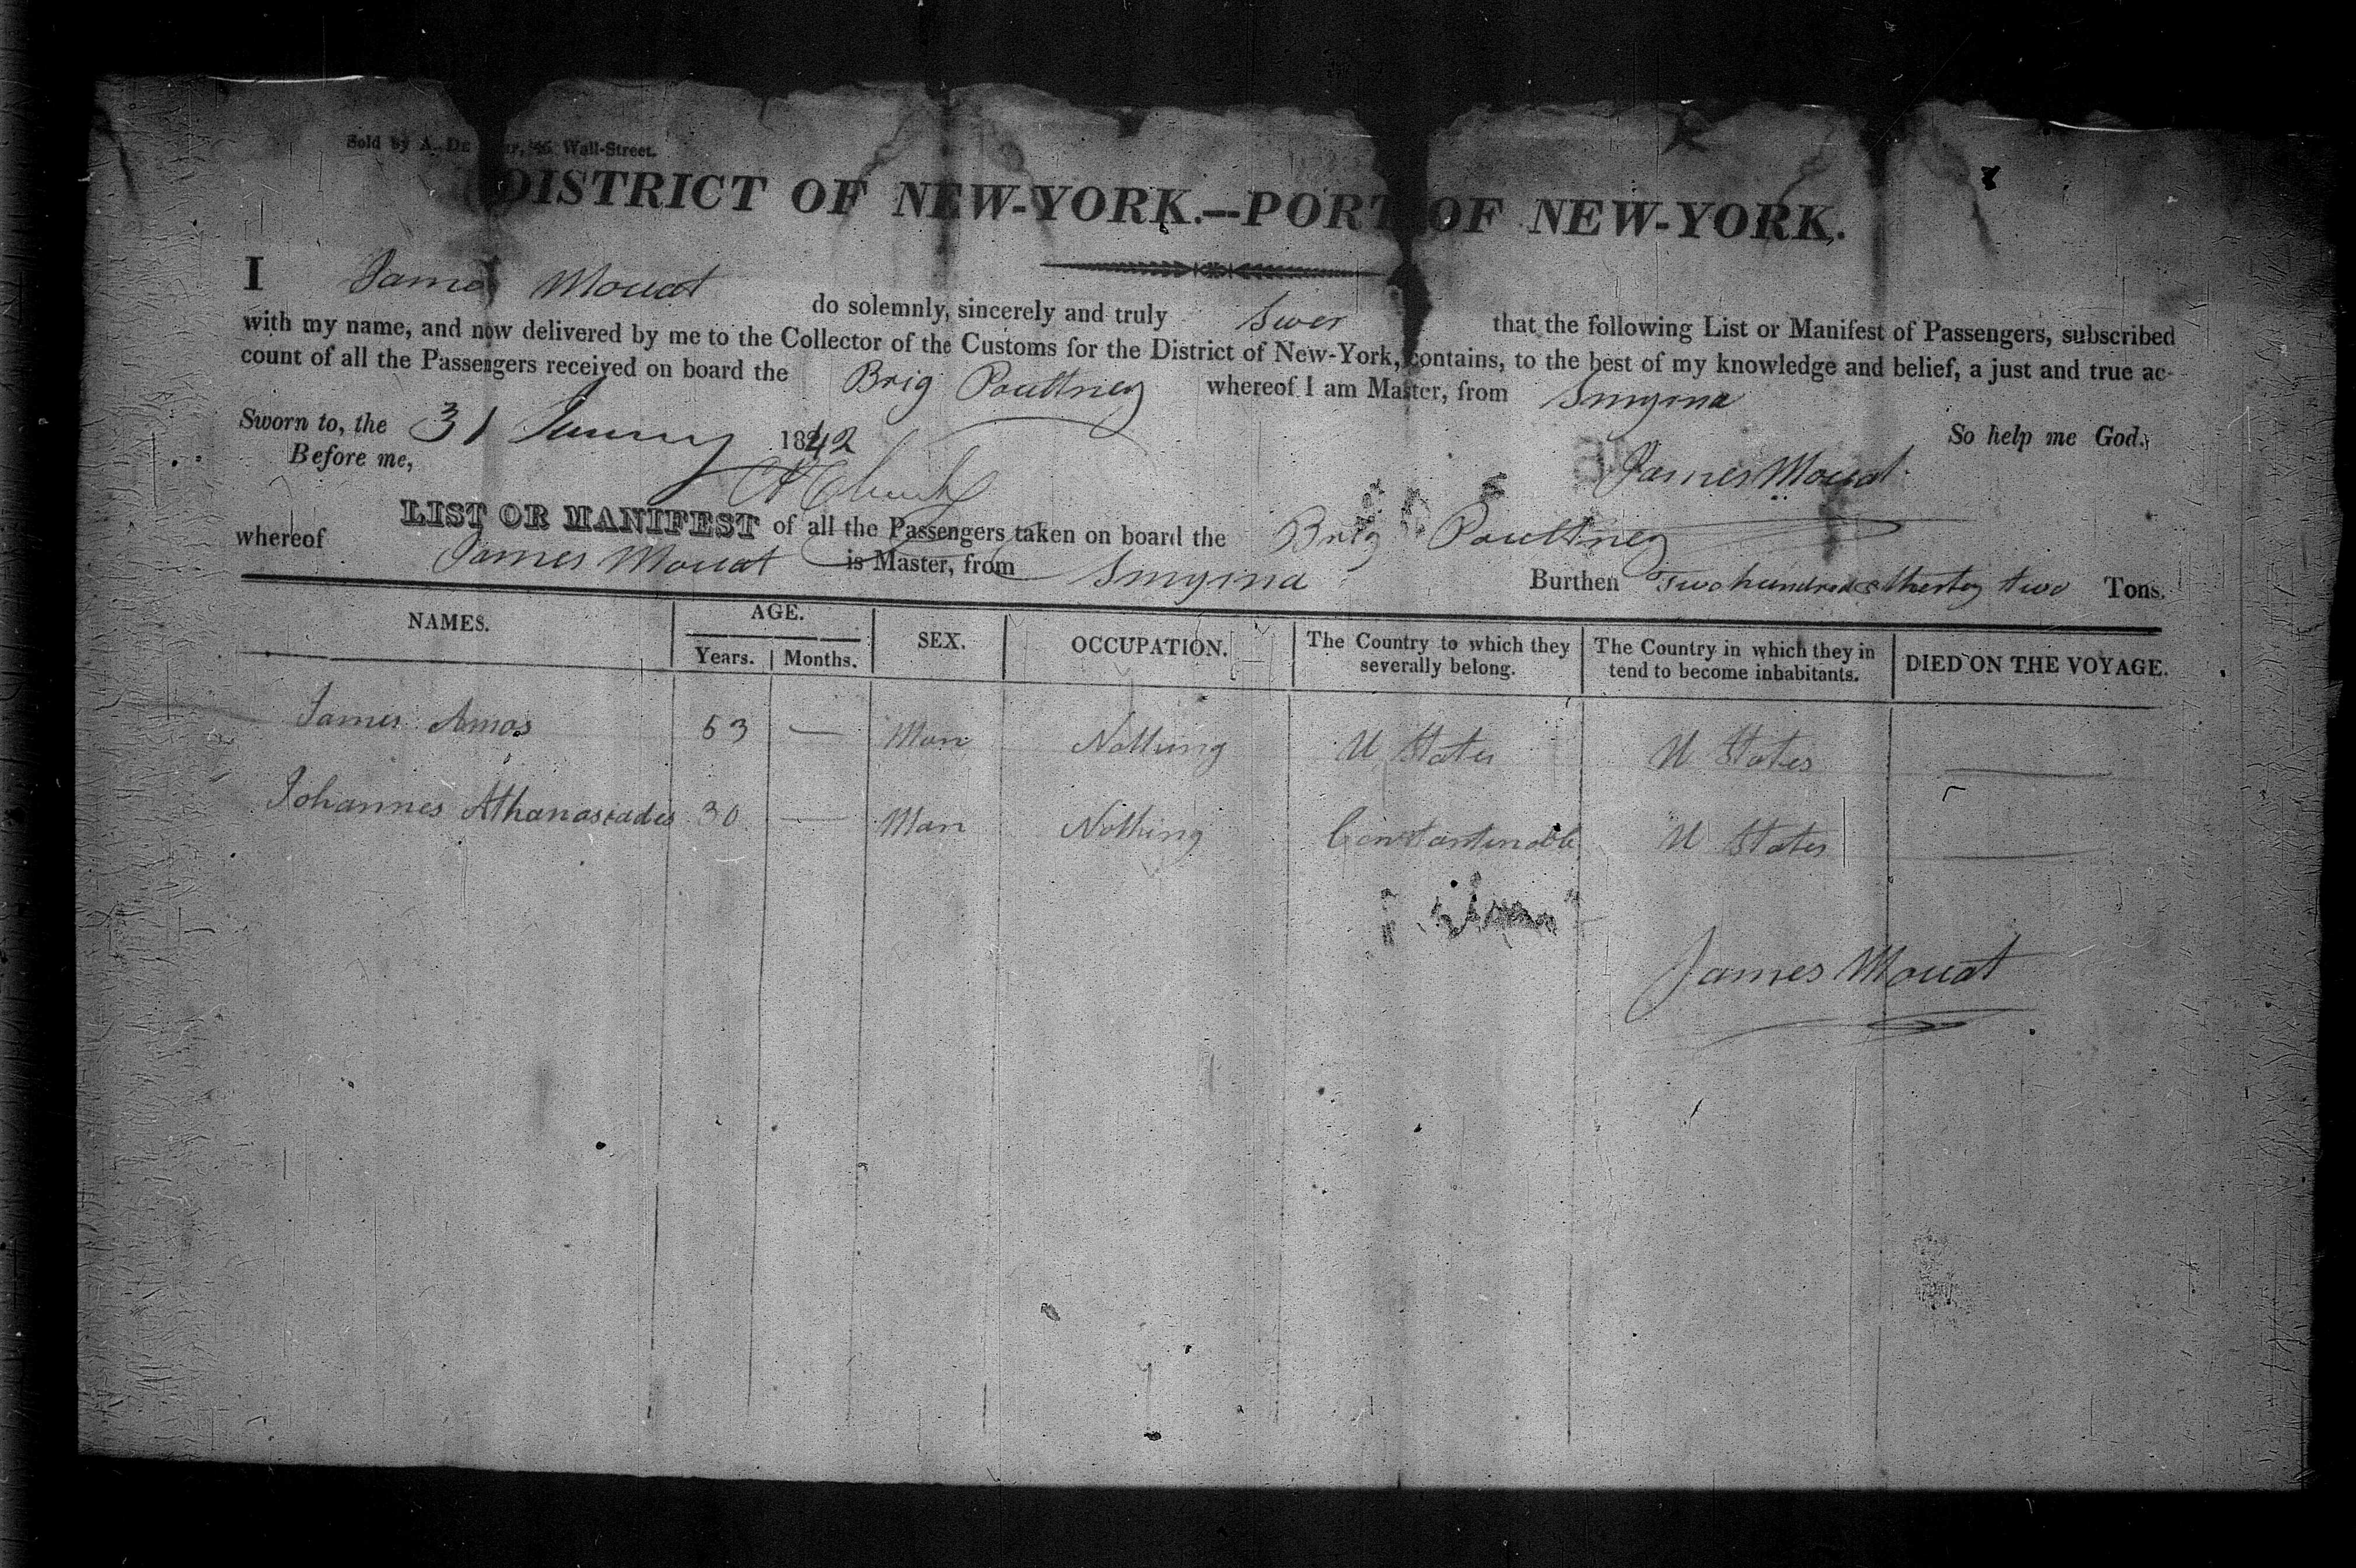 Sold by A. De 46 Wall-Street.
DISTRICT OF NEW-YORK.—PORT OF NEW-YORK.
I James Mouat do solemnly, sincerely and truly Swer that the following List or Manifest of Passengers, subscribed
with my name, and now delivered by me to the Collector of the Customs for the District of New-York, contains, to the best of my knowledge and belief, a just and true ac-
count of all the Passengers received on board the Brig Poultney whereof I am Master, from Smyrna
Sworn to, the 31 January 1842 So help me God.
Before me, James Mouat
LIST OR MANIFEST of all the Passengers taken on board the Brig Poultney
whereof James Mouat is Master, from Smyrna Burthen Two hundred & therty two Tons.
NAMES. AGE. Years. Months. SEX. OCCUPATION. The Country to which they severally belong. The Country in which they in tend to become inhabitants. DIED ON THE VOYAGE.
James Amos 53 — Man Nothing U States U States —
Johannes Athanasiades 30 — Man Nothing Constantinople U States —
James Mouat